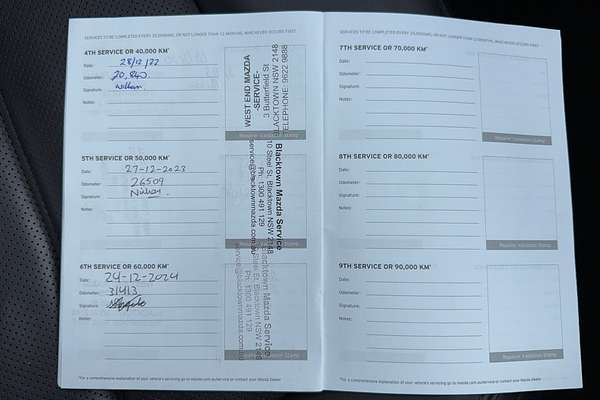 SERVICES TO BE COMPLETED EVERY 10,000KMS, OR NOT LONGER THAN 12 MONTHS, WHICHEVER OCCURS FIRST
4TH SERVICE OR 40,000 KM*
Date: 28/12/22
Odometer: 20,840
Signature:
Notes:
WEST END MAZDA
-SERVICE-
3 Butterfield St
BLACKTOWN NSW 2148
TELEPHONE: 9622 9888
Repairer Validation Stamp
5TH SERVICE OR 50,000 KM*
Date: 27-12-2023
Odometer: 26509
Signature:
Notes:
Blacktown Mazda Service
10 Steel St, Blacktown NSW 2148
Ph: 1300 491 129
service@blacktownmazda.com.au
6TH SERVICE OR 60,000 KM*
Date: 24-12-2024
Odometer: 31413
Signature:
Notes:
Blacktown Mazda Service
Steel St, Blacktown NSW 2148
Ph: 1300 491 129
service@blacktownmazda.com.au
Repairer Validation Stamp
*For a comprehensive explanation of your vehicle's servicing go to mazda.com.au/service or contact your Mazda Dealer
SERVICES TO BE COMPLETED EVERY 10,000KMS, OR NOT LONGER THAN 12 MONTHS, WHICHEVER OCCURS FIRST
7TH SERVICE OR 70,000 KM*
Date:
Odometer:
Signature:
Notes:
Repairer Validation Stamp
8TH SERVICE OR 80,000 KM*
Date:
Odometer:
Signature:
Notes:
Repairer Validation Stamp
9TH SERVICE OR 90,000 KM*
Date:
Odometer:
Signature:
Notes:
Repairer Validation Stamp
*For a comprehensive explanation of your vehicle's servicing go to mazda.com.au/service or contact your Mazda Dealer